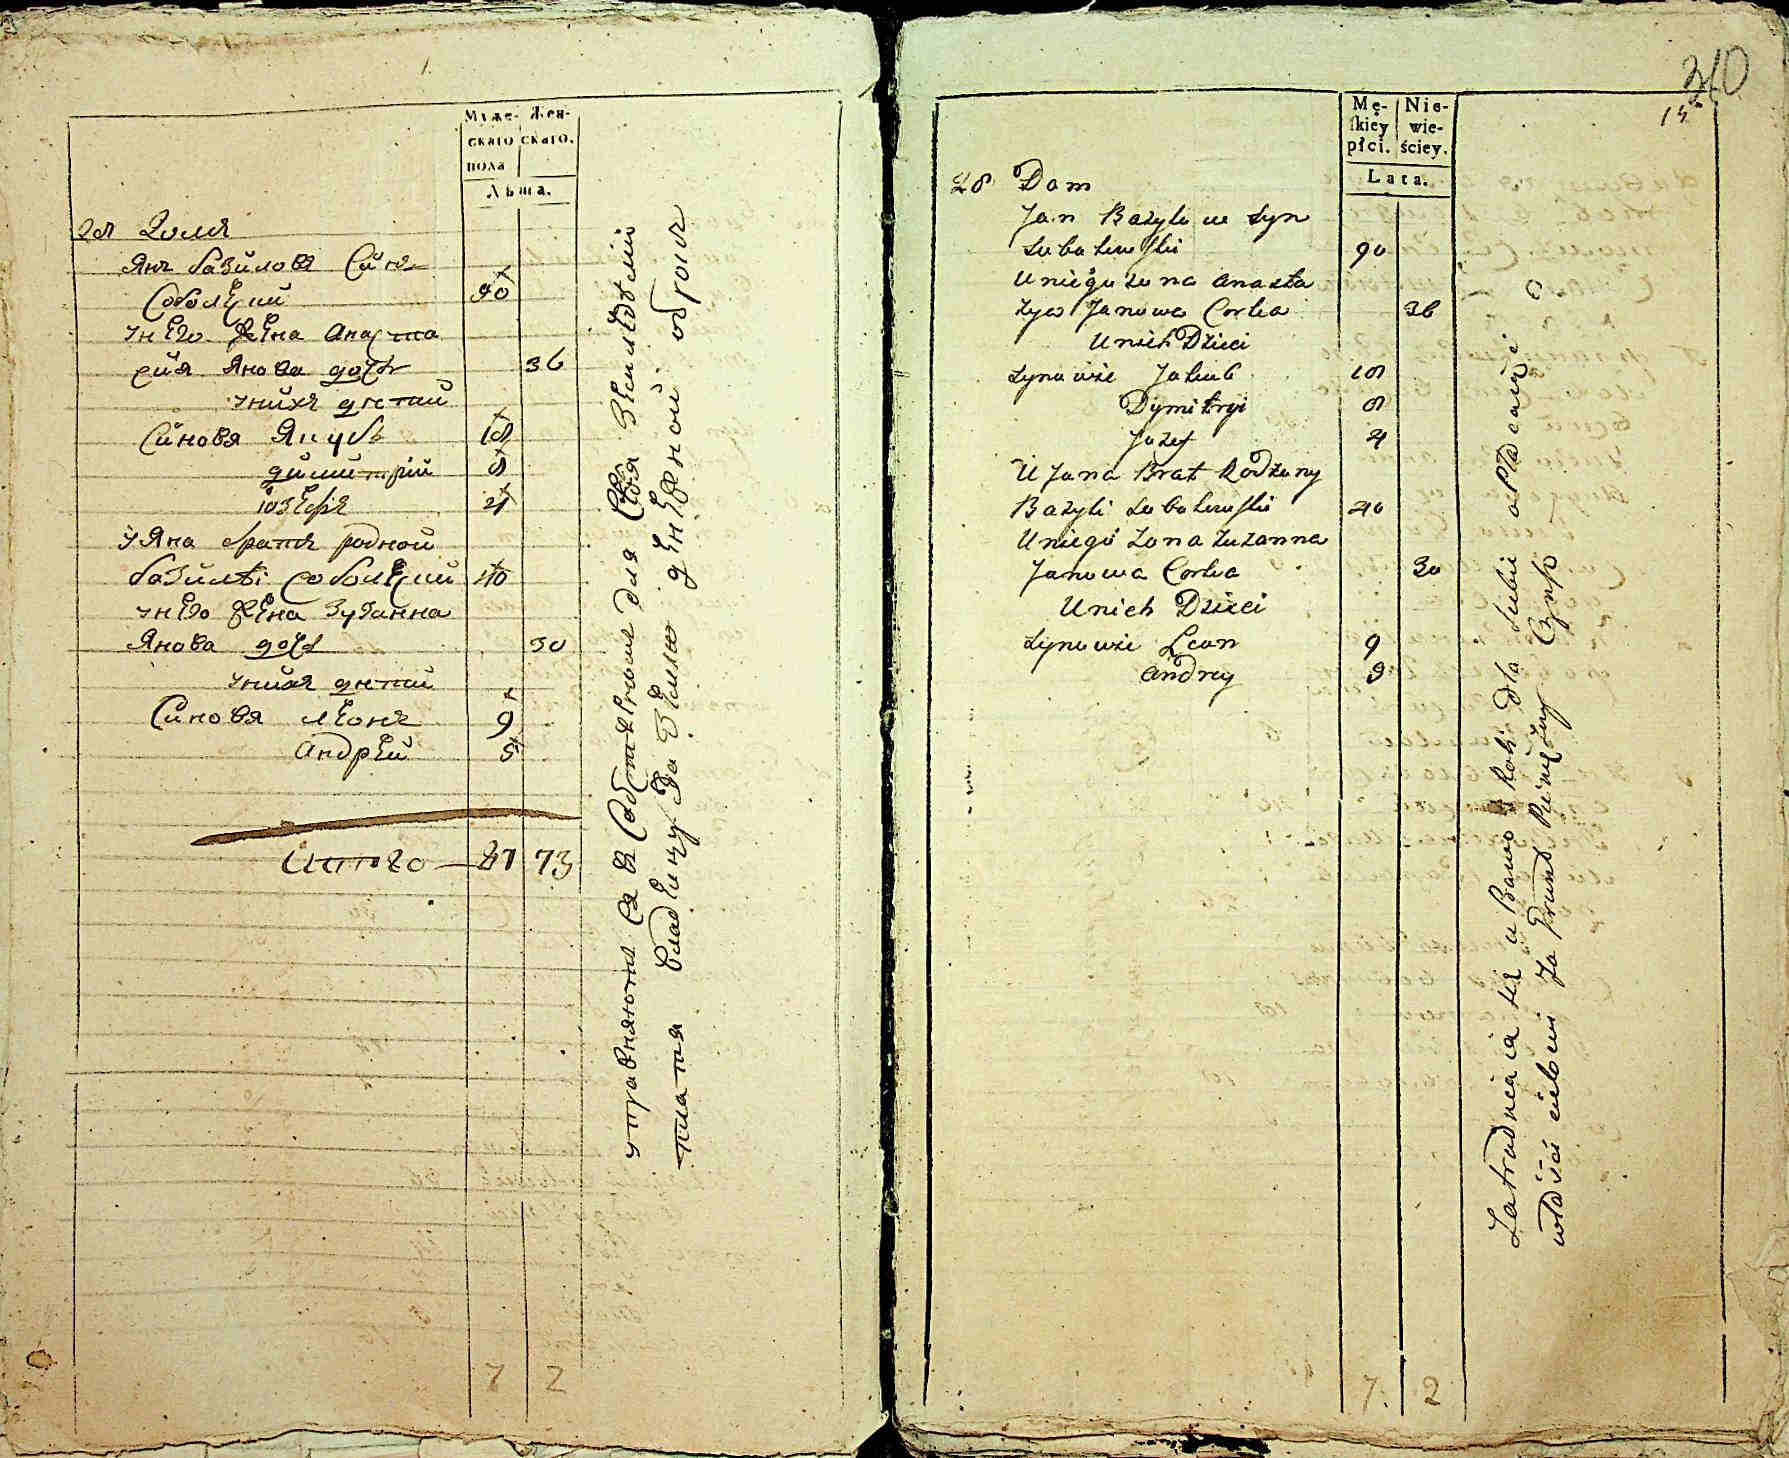 Муже- Жен-
скаго скаго.
пола
Лѣта.
28 Домъ
Янъ базиловъ Синъ
Соболѣцкий
унего жена Анаста
сия Янова дочь 36
унихъ детий
Синовя Якубъ 18
димитрий 8
іозефъ 4
уяна братъ родной
базилѣ Соболецкий 40
унего жена Зузанна
Янова дочь 30
унихъ детий
Синовя леонъ 9
Андрей 5
Итого — 87 73
управняются для себя землею
платя владелцу за землю денежной оброкъ
7 2
310
15
Mę- Nie-
skiéy wie-
płci. ściey.
Lata.
28 Dom
Jan Bazyli w Syn
Sobolewski 90
Uniego Zona Anasta
zya Janowa Corka 36
Unich Dzieci
Synowie Jakub 18
Dymitryi 8
Jozef 4
U Jana Brat Rodzony
Bazyli Sobolewski 40
Uniego Zona Zuzanna
Janowa Corka 30
Unich Dzieci
Synowie Leon 9
Andrey 5
Zatrudniaia się u Prawo Roli Dla Siebie opłacaiąc
właścicielowi Za Grunt Pieniężny Czynsz
7. 2